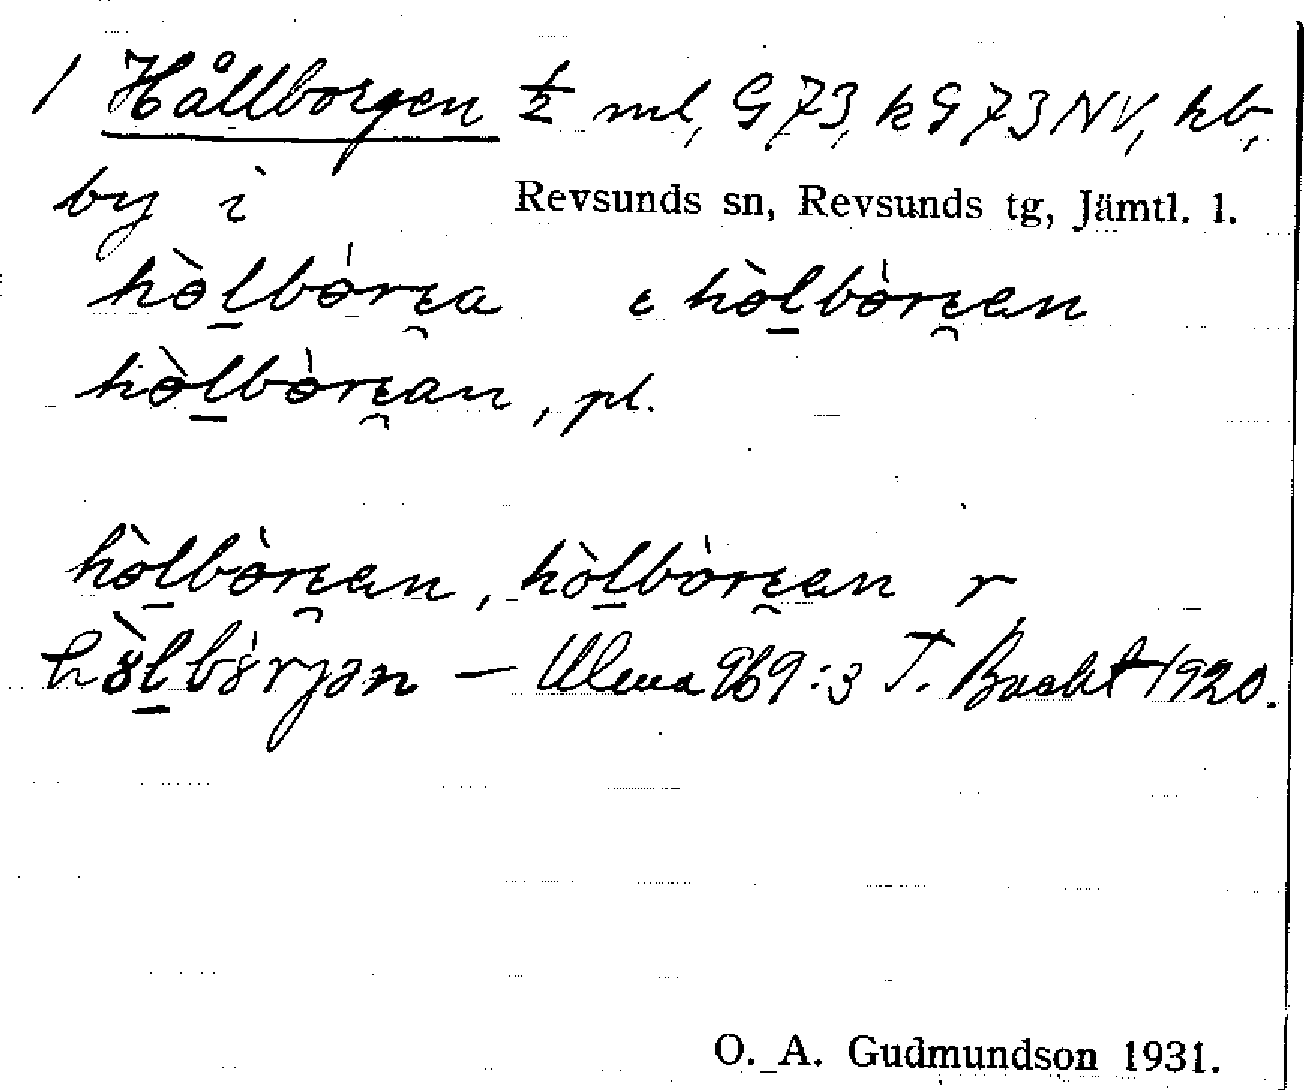 1 Hållborgen ½ ml, G 73, k G 73 NV, hb,
by i Revsunds sn, Revsunds tg, Jämtl. l.
hòl̠bòrɛ̯a ɛ hòl̠bòrɛ̯en
hòl̠bòrɛ̯an, pl.
hòl̠bòrɛ̯en, hòl̠bòrɛ̯en r
hòl̠bòrjən — Ulma 969:3 T. Bucht 1920.
O. A. Gudmundson 1931.